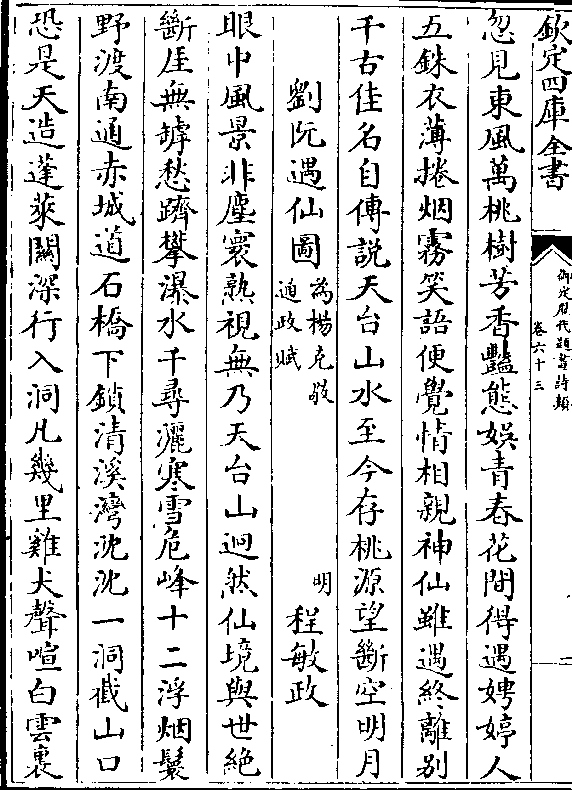 欽定四庫全書
御定歷代題畫詩類
卷六十三
二
忽見東風萬桃樹芳香豔態娛青春花間得遇娉婷人
五銖衣薄捲烟霧笑語便覺情相親神仙雖遇終離别
千古佳名自傳説天台山水至今存桃源望斷空明月
劉阮遇仙圖
為楊克敬
通政賦
明
程敏政
眼中風景非塵寰熟視無乃天台山迥然仙境與世絶
斷厓無罅愁躋攀瀑水千尋灑寒雪危峰十二浮烟鬟
野渡南通赤城道石橋下鎖清溪灣沈沈一洞截山口
恐是天造蓬萊關深行入洞凡幾里雞犬聲喧白雲裏